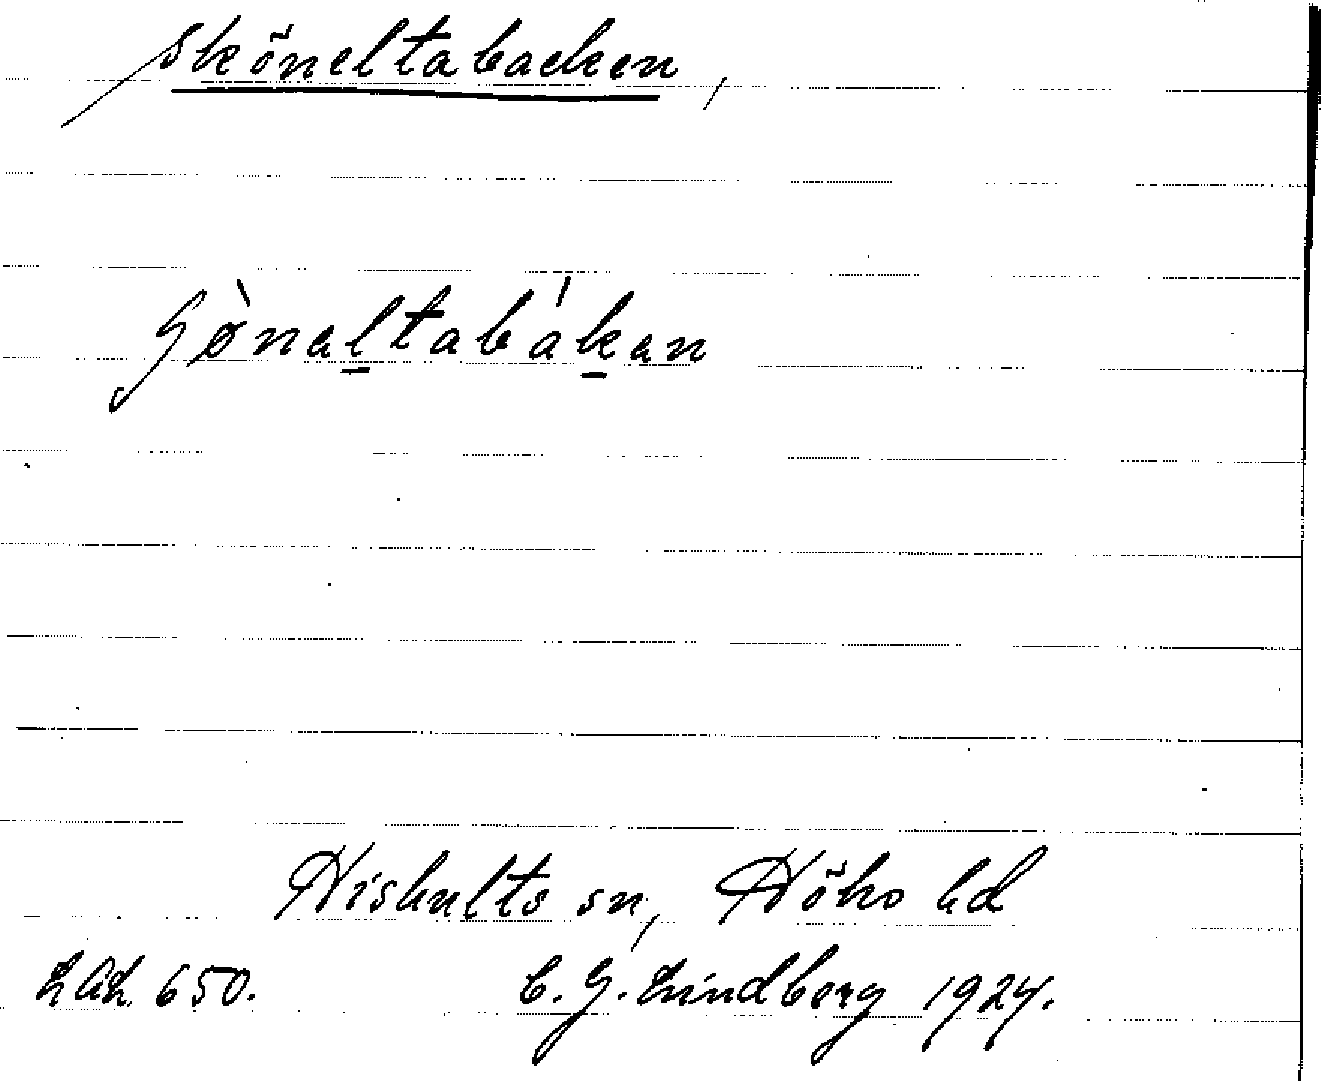 Sköneltabacken,
ʃø̀nəl̠tabák̠ən
Hishults sn, Höks hd
LAL 650.
C. G. Lindberg 1924.